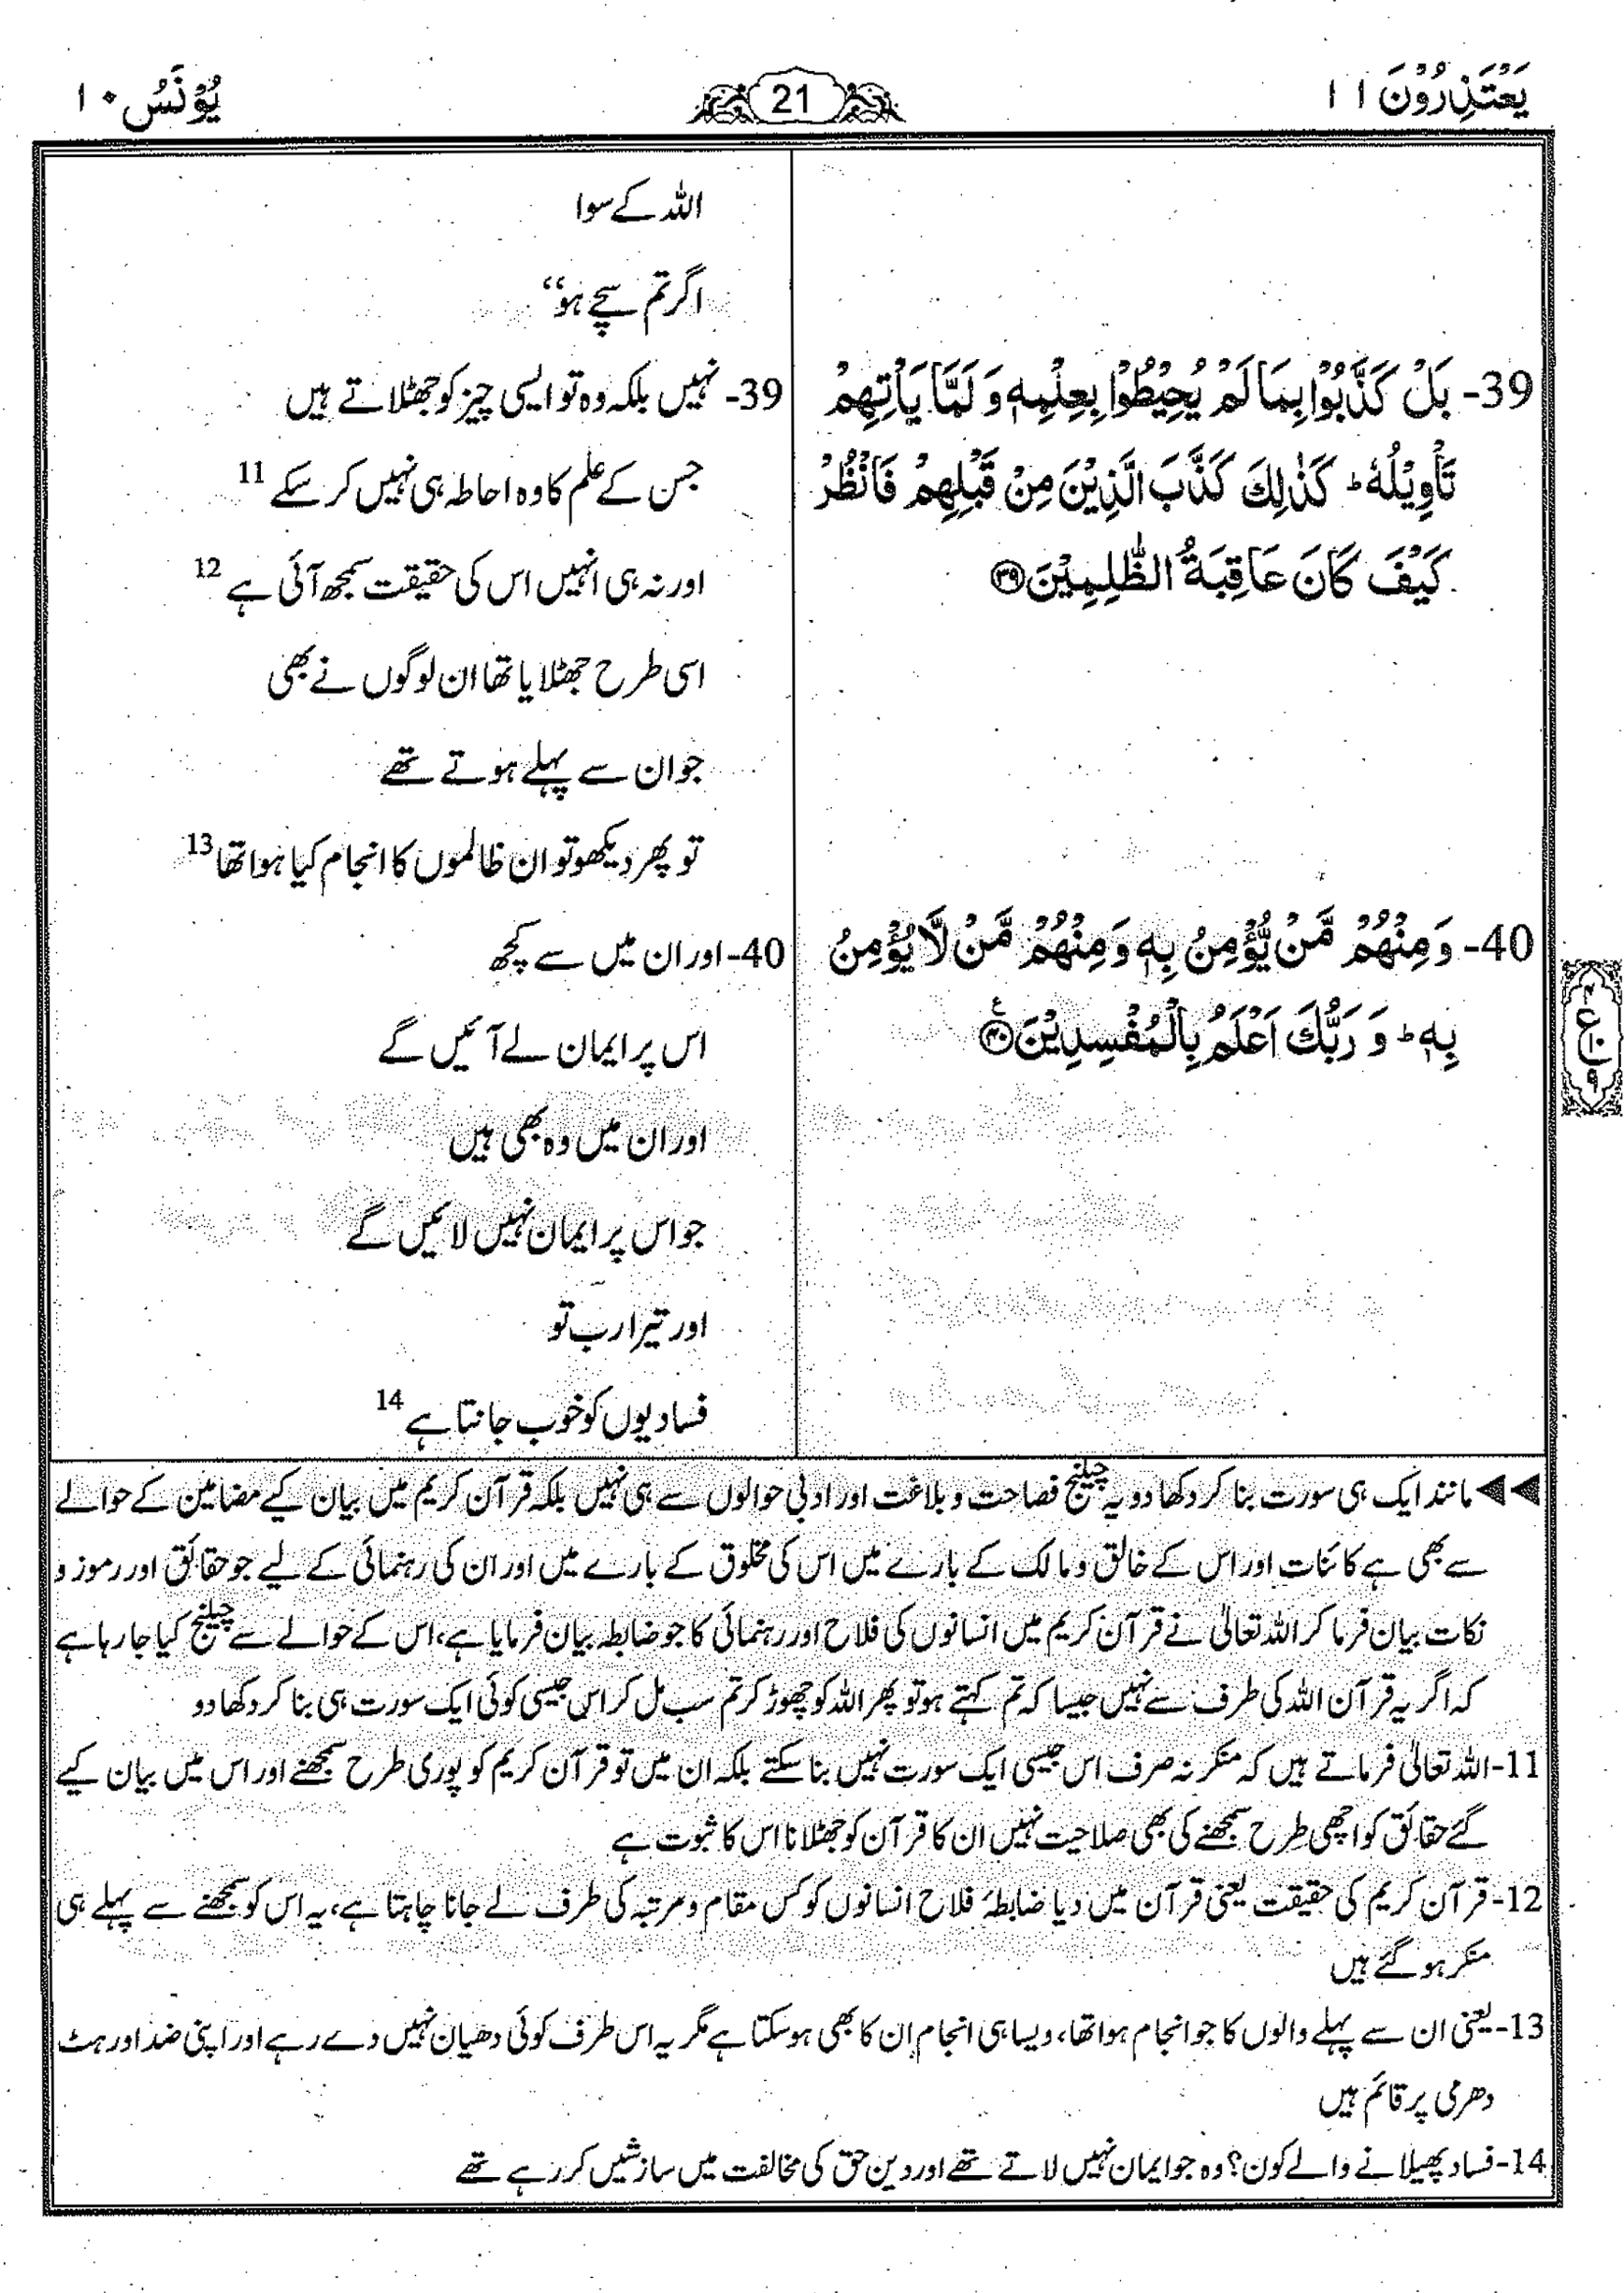 یَعْتَذِرُوْنَ ۱۱
21
یُوْنَسُ ۱۰
39- بَلْ كَذَّبُوْا بِمَا لَمْ یُحِیْطُوْا بِعِلْمِهٖ وَ لَمَّا یَاْتِهِمْ
تَاْوِیْلُهٗ ؕ كَذٰلِكَ كَذَّبَ الَّذِیْنَ مِنْ قَبْلِهِمْ فَانْظُرْ
كَیْفَ كَانَ عَاقِبَةُ الظّٰلِمِیْنَ ۝۳۹
40- وَ مِنْهُمْ مَّنْ یُّؤْمِنُ بِهٖ وَ مِنْهُمْ مَّنْ لَّا یُؤْمِنُ
بِهٖ ؕ وَ رَبُّكَ اَعْلَمُ بِالْمُفْسِدِیْنَ ۝۴۰
اللہ کے سوا
اگر تم سچے ہو‘‘
39- نہیں بلکہ وہ تو ایسی چیز کو جھٹلاتے ہیں
جس کے علم کا وہ احاطہ ہی نہیں کر سکے 11
اور نہ ہی انہیں اس کی حقیقت سمجھ آئی ہے 12
اسی طرح جھٹلایا تھا ان لوگوں نے بھی
جو ان سے پہلے ہوتے تھے
تو پھر دیکھو تو ان ظالموں کا انجام کیا ہوا تھا 13
40- اور ان میں سے کچھ
اس پر ایمان لے آئیں گے
اور ان میں وہ بھی ہیں
جو اس پر ایمان نہیں لائیں گے
اور تیرا رب تو
فسادیوں کو خوب جانتا ہے 14
◀◀ مانند ایک ہی سورت بنا کر دکھا دو یہ چیلنج فصاحت و بلاغت اور ادبی حوالوں سے ہی نہیں بلکہ قرآن کریم میں بیان کیے مضامین کے حوالے
سے بھی ہے کائنات اور اس کے خالق و مالک کے بارے میں اس کی مخلوق کے بارے میں اور ان کی رہنمائی کے لیے جو حقائق اور رموز و
نکات بیان فرما کر اللہ تعالیٰ نے قرآن کریم میں انسانوں کی فلاح اور رہنمائی کا جو ضابطہ بیان فرمایا ہے، اس کے حوالے سے چیلنج کیا جا رہا ہے
کہ اگر یہ قرآن اللہ کی طرف سے نہیں جیسا کہ تم کہتے ہو تو پھر اللہ کو چھوڑ کر تم سب مل کر اس جیسی کوئی ایک سورت ہی بنا کر دکھا دو
11- اللہ تعالیٰ فرماتے ہیں کہ منکر نہ صرف اس جیسی ایک سورت نہیں بنا سکتے بلکہ ان میں تو قرآن کریم کو پوری طرح سمجھنے اور اس میں بیان کیے
گئے حقائق کو اچھی طرح سمجھنے کی بھی صلاحیت نہیں ان کا قرآن کو جھٹلانا اس کا ثبوت ہے
12- قرآن کریم کی حقیقت یعنی قرآن میں دیا ضابطۂ فلاح انسانوں کو کس مقام و مرتبہ کی طرف لے جانا چاہتا ہے، یہ اس کو سمجھنے سے پہلے ہی
منکر ہو گئے ہیں
13- یعنی ان سے پہلے والوں کا جو انجام ہوا تھا، ویسا ہی انجام اِن کا بھی ہو سکتا ہے مگر یہ اس طرف کوئی دھیان نہیں دے رہے اور اپنی ضد اور ہٹ
دھرمی پر قائم ہیں
14- فساد پھیلانے والے کون؟ وہ جو ایمان نہیں لاتے تھے اور دین حق کی مخالفت میں سازشیں کر رہے تھے